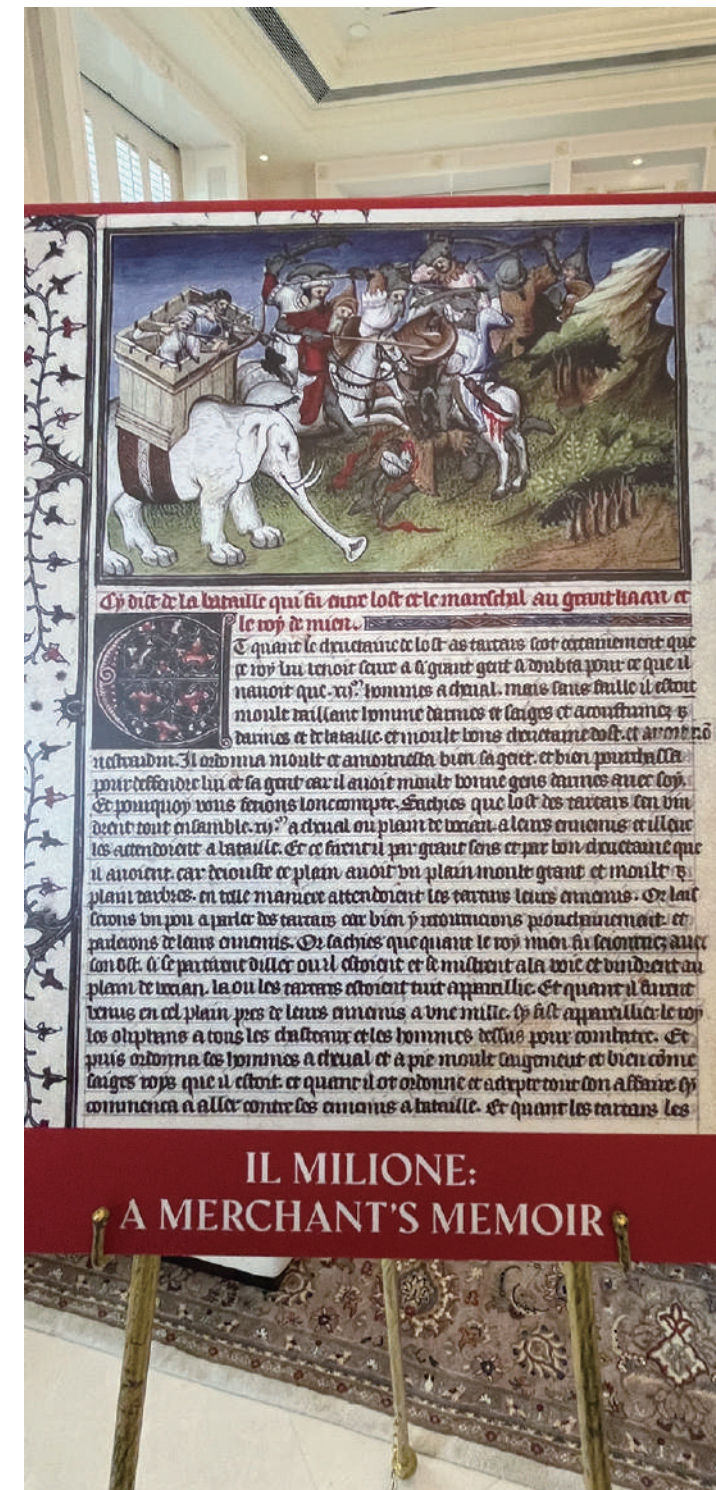 Cy dist de la bataille qui fu entre lost et le mareschal au grant kaan et
le roy de mien.
Et quant le cheuetaine de lost as tartars scot certainement que
ce roy lui venoit seure a si grant gent si doubta pour ce que il
nauoit que .xij.m hommes a cheual. mais sans faille il estoit
moult vaillant homme darmes et saiges et acoustumez
darmes et de bataille. et moult bons cheuetaine dost. et
Il ordonna moult et amonnesta bien sa gent. et bien pourchassa
pour deffendre lui et sa gent car il auoit moult bonne gens darmes auec soy.
Et pourquoy vous ferons lonc compte. Sachies que lost des tartars sen vin
drent tout ensamble .xij.m a cheual ou plain de vocian a leurs ennemis et illeuc
les attendoient a bataille. Et ce firent il par grant sens et par bon cheuetaine que
il auoient. car deiouste ce plain auoit vn plain moult grant et moult
plain darbres. en telle maniere attendoient les tartars leurs ennemis. Or lais
serons vn pou a parler des tartars car bien y retournerons prouchainement. et
parlerons de leurs ennemis. Or sachies que quant le roy mien fu seiournez auec
son ost. si se partirent dillec ou il estoient et se mistrent a la voie et vindrent au
plain de vocian. la ou les tartars estoient tuit appareillie. Et quant il furent
venus en cel plain pres de leurs ennemis a vne mille. sy fist appareillier le roy
les oliphans a tous les chasteaux et les hommes dessus pour combatre. Et
puis ordonna ses hommes a cheual et a pie moult saigement et bien come
saiges roys que il estoit. et quant il ot ordonne et tout son affaire sy
commenca a aller contre ses ennemis a bataille. Et quant les tartars les
IL MILIONE:
A MERCHANT'S MEMOIR